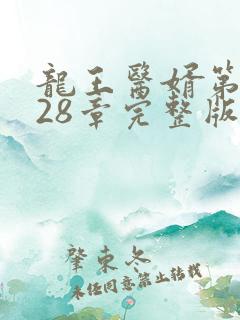 龍王醫婿第
28章完整版
肇東冬
未经同意禁止转载